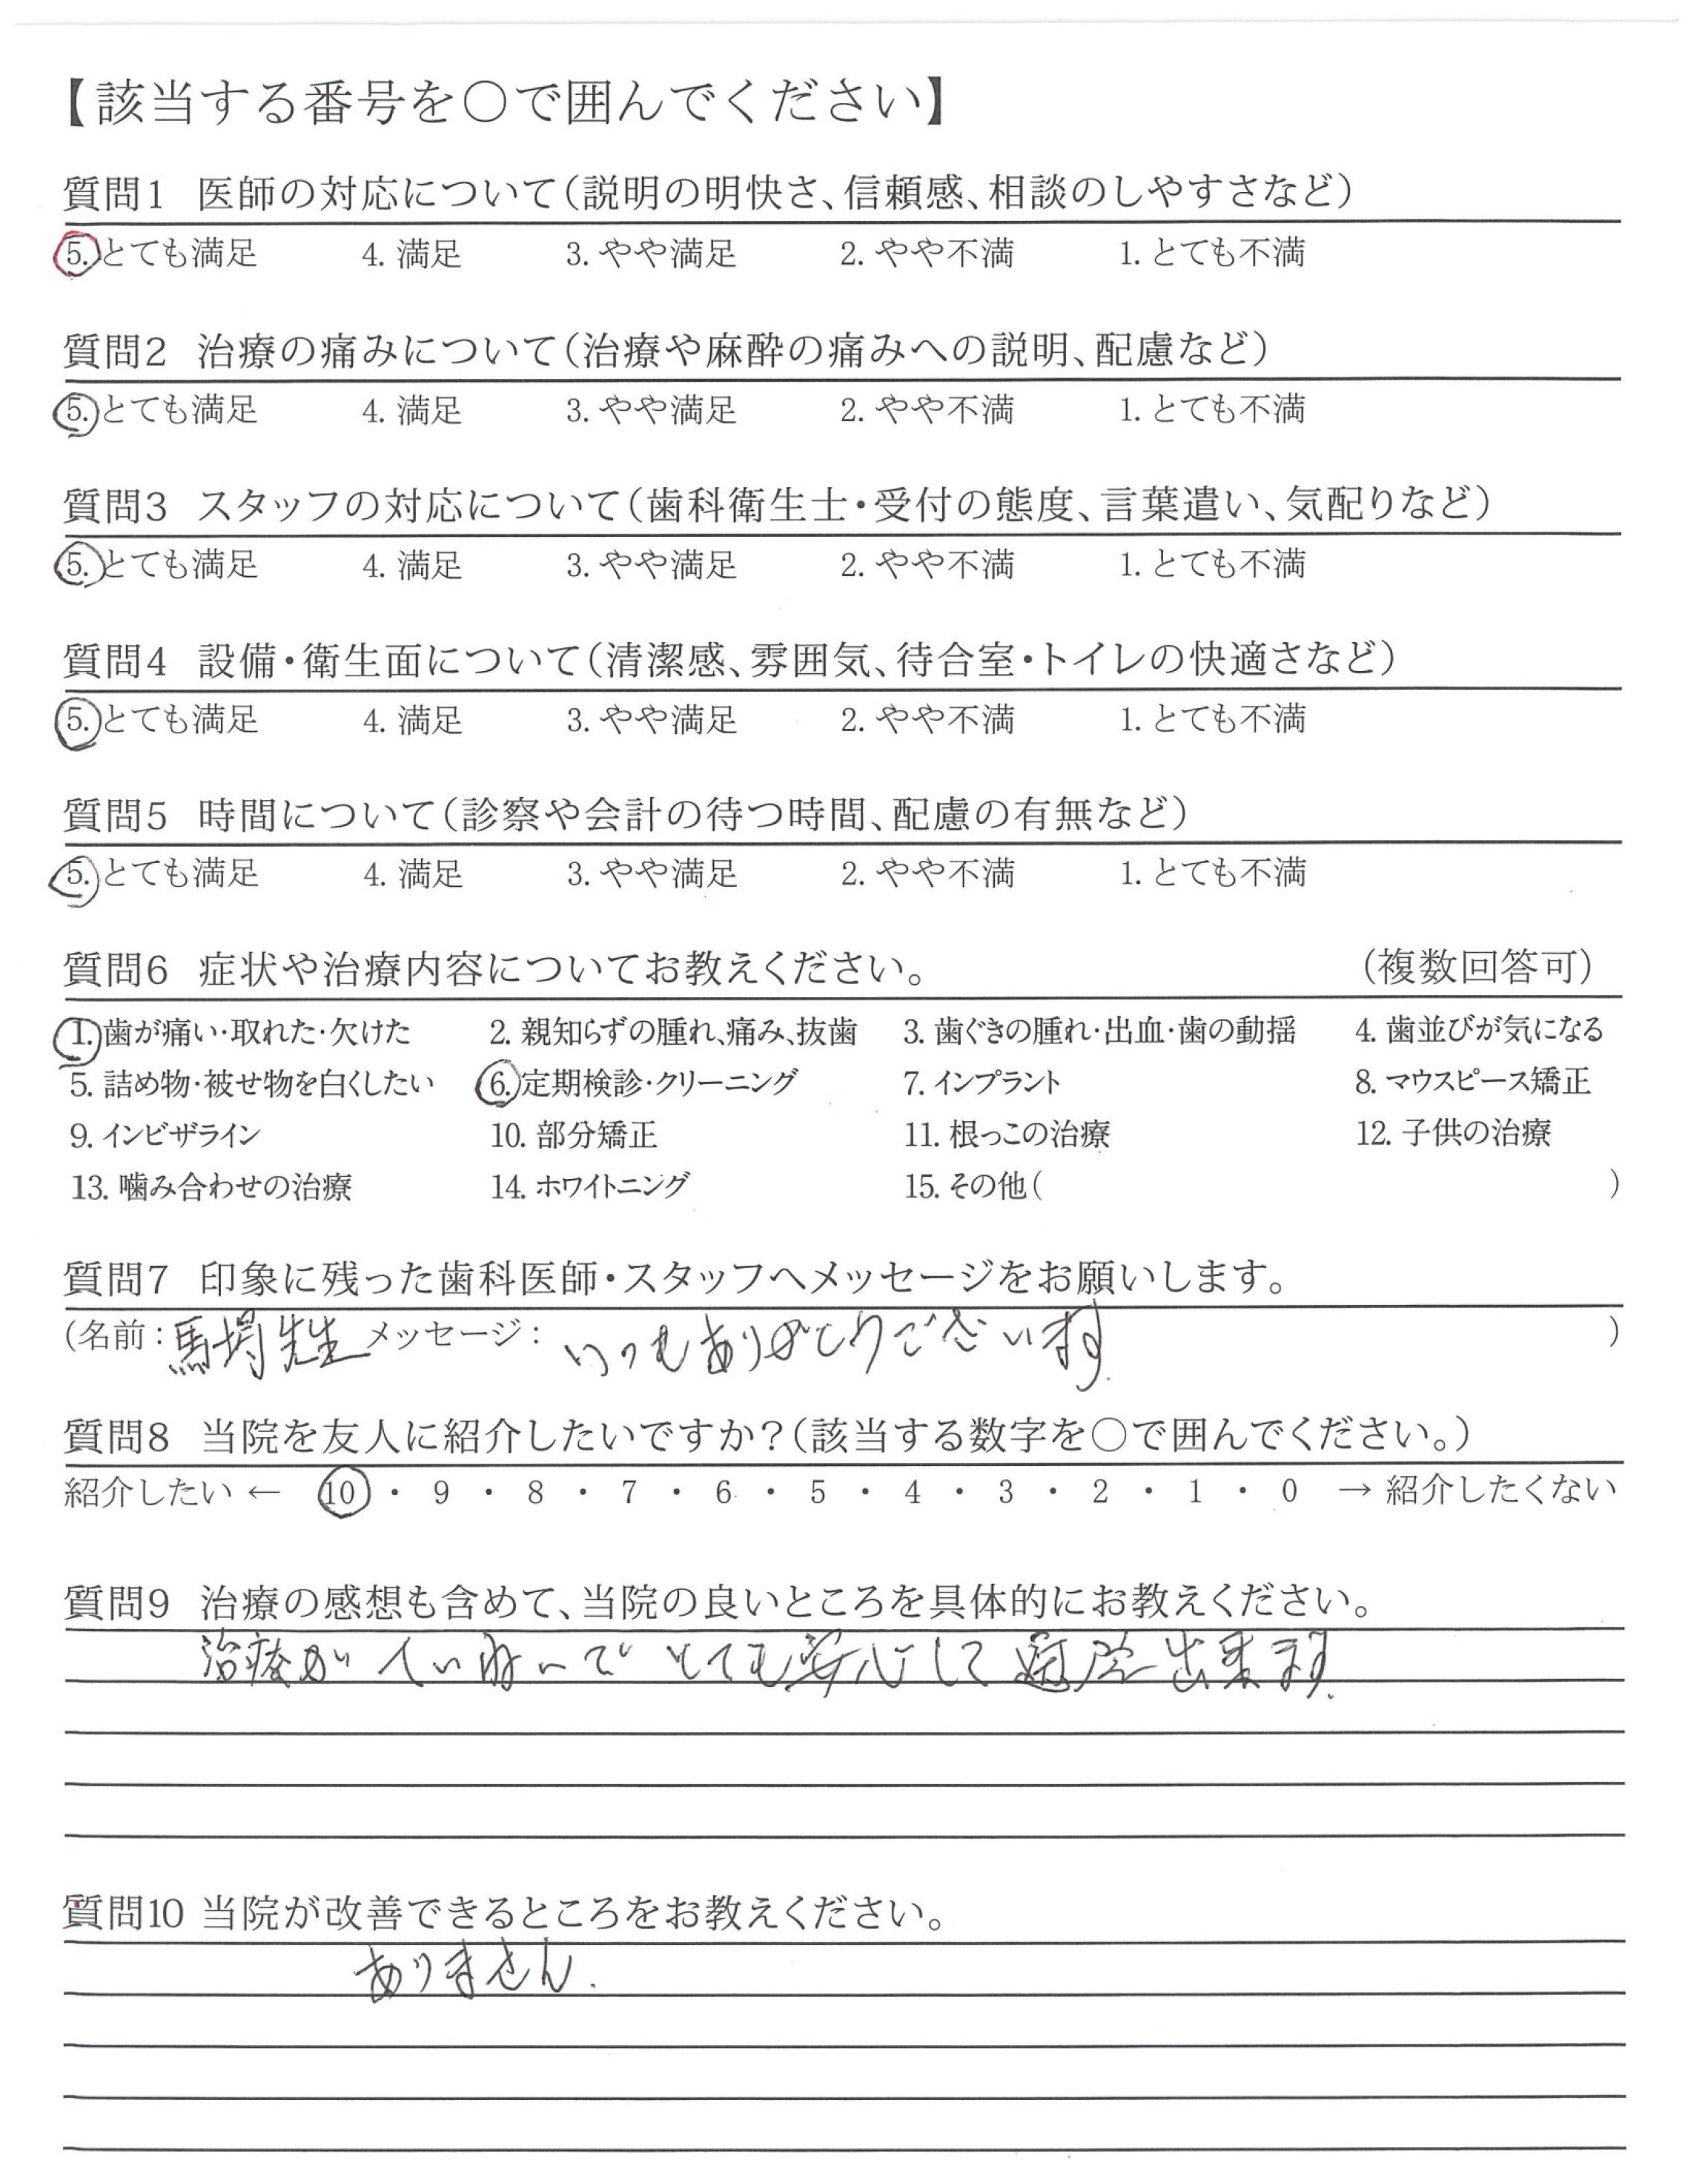 【該当する番号を○で囲んでください】
質問1 医師の対応について(説明の明快さ、信頼感、相談のしやすさなど)
5. とても満足 4. 満足 3. やや満足 2. やや不満 1. とても不満
質問2 治療の痛みについて(治療や麻酔の痛みへの説明、配慮など)
5. とても満足 4. 満足 3. やや満足 2. やや不満 1. とても不満
質問3 スタッフの対応について(歯科衛生士・受付の態度、言葉遣い、気配りなど)
5. とても満足 4. 満足 3. やや満足 2. やや不満 1. とても不満
質問4 設備・衛生面について(清潔感、雰囲気、待合室・トイレの快適さなど)
5. とても満足 4. 満足 3. やや満足 2. やや不満 1. とても不満
質問5 時間について(診察や会計の待つ時間、配慮の有無など)
5. とても満足 4. 満足 3. やや満足 2. やや不満 1. とても不満
質問6 症状や治療内容についてお教えください。 (複数回答可)
1. 歯が痛い・取れた・欠けた 2. 親知らずの腫れ、痛み、抜歯 3. 歯ぐきの腫れ・出血・歯の動揺 4. 歯並びが気になる
5. 詰め物・被せ物を白くしたい 6. 定期検診・クリーニング 7. インプラント 8. マウスピース矯正
9. インビザライン 10. 部分矯正 11. 根っこの治療 12. 子供の治療
13. 噛み合わせの治療 14. ホワイトニング 15. その他( )
質問7 印象に残った歯科医師・スタッフへメッセージをお願いします。
(名前:馬場先生 メッセージ: いつもありがとうございます. )
質問8 当院を友人に紹介したいですか?(該当する数字を○で囲んでください。)
紹介したい ← 10 ・ 9 ・ 8 ・ 7 ・ 6 ・ 5 ・ 4 ・ 3 ・ 2 ・ 1 ・ 0 → 紹介したくない
質問9 治療の感想も含めて、当院の良いところを具体的にお教えください。
治療が てい でとても安心して通院出来ます.
質問10 当院が改善できるところをお教えください。
ありません.